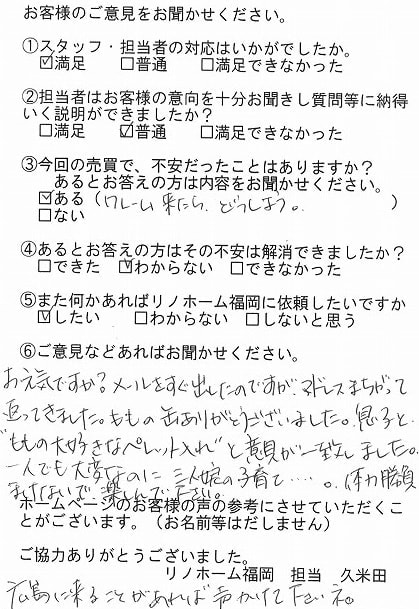 お客様のご意見をお聞かせください。
①スタッフ・担当者の対応はいかがでしたか。
☑満足 □普通 □満足できなかった
②担当者はお客様の意向を十分お聞きし質問等に納得
いく説明ができましたか？
□満足 ☑普通 □満足できなかった
③今回の売買で、不安だったことはありますか？
あるとお答えの方は内容をお聞かせください。
☑ある（クレーム来たら、どうしよう。）
□ない
④あるとお答えの方はその不安は解消できましたか？
□できた ☑わからない □できなかった
⑤また何かあればリノホーム福岡に依頼したいですか
☑したい □わからない □しないと思う
⑥ご意見などあればお聞かせください。
お元気ですか？メールをすぐ出したのですが、アドレスまちがって
返ってきました。ももの缶ありがとうございました。息子と、
"ももの大好きなペレット入れ"と意見が一致しました。
一人でも大変なのに三人娘の子育て……。体力勝負
ホームページのお客様の声の参考にさせていただくこ
とがございます。（お名前等はだしません）
ご協力ありがとうございました。
リノホーム福岡 担当 久米田
広島に来ることがあれば声かけて下さいネ。